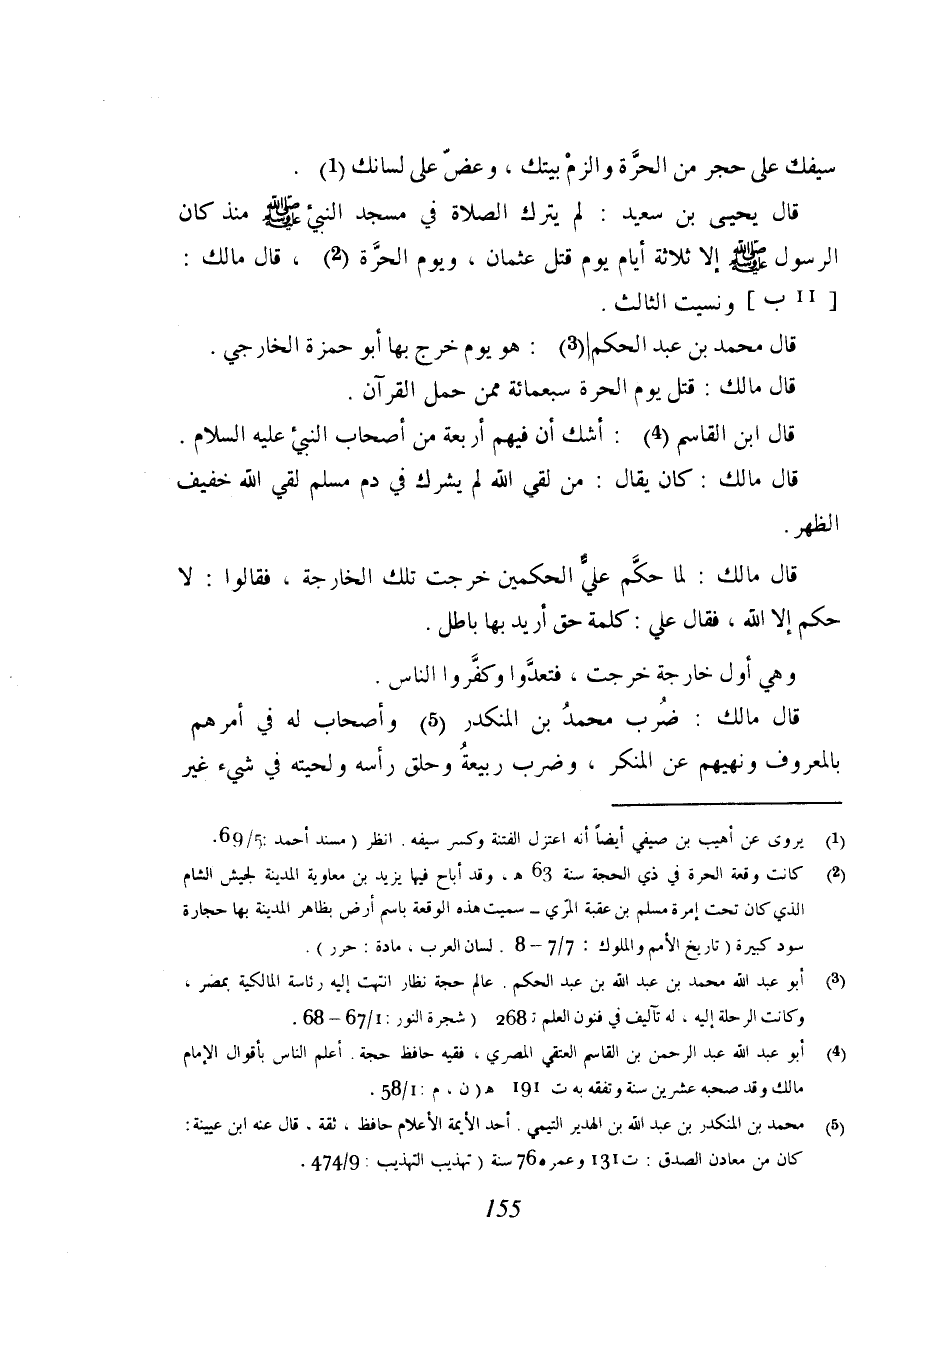 سيفك على حجر من الحرَّة والزمْ بيتك ، وعضّ على لسانك (1) .
قال يحيى بن سعيد : لم يترك الصلاة في مسجد النبيّ ﷺ منذ كان
الرسول ﷺ إلا ثلاثة أيام يوم قتل عثمان ، ويوم الحرَّة (2) ، قال مالك :
[ 11 ب ] ونسيت الثالث .
قال محمد بن عبد الحكم (3) : هو يوم خرج بها أبو حمزة الخارجي .
قال مالك : قتل يوم الحرة سبعمائة ممن حمل القرآن .
قال ابن القاسم (4) : أشك أن فيهم أربعة من أصحاب النبيّ عليه السلام .
قال مالك : كان يقال : من لقي الله لم يشرك في دم مسلم لقي الله خفيف
الظهر .
قال مالك : لما حكَّم عليٌّ الحكمين خرجت تلك الخارجة ، فقالوا : لا
حكم إلا الله ، فقال علي : كلمة حق أريد بها باطل .
وهي أول خارجة خرجت ، فتعدَّوا وكفَّروا الناس .
قال مالك : ضُرب محمدُ بن المنكدر (5) وأصحاب له في أمرهم
بالمعروف ونهيهم عن المنكر ، وضرب ربيعةُ وحلق رأسه ولحيته في شيء غير
(1) يروى عن أهيب بن صيفي أيضاً أنه اعتزل الفتنة وكسر سيفه . انظر ( مسند أحمد : 69/5.
(2) كانت وقعة الحرة في ذي الحجة سنة 63 ه ، وقد أباح فيها يزيد بن معاوية المدينة لجيش الشام
الذي كان تحت إمرة مسلم بن عقبة المرّي – سميت هذه الوقعة باسم أرض بظاهر المدينة بها حجارة
سود كبيرة ( تاريخ الأمم والملوك : 7/7 – 8 . لسان العرب ، مادة : حرر ) .
(3) أبو عبد الله محمد بن عبد الله بن عبد الحكم . عالم حجة نظار انتهت إليه رئاسة المالكية بمصر ،
وكانت الرحلة إليه ، له تآليف في فنون العلم ت 268 ( شجرة النور : 67/1 – 68 .
(4) أبو عبد الله عبد الرحمن بن القاسم العتقي المصري ، فقيه حافظ حجة . أعلم الناس بأقوال الإمام
مالك وقد صحبه عشرين سنة وتفقه به ت 191 ه ( ن ، م : 58/1 .
(5) محمد بن المنكدر بن عبد الله بن الهدير التيمي . أحد الأيمة الأعلام حافظ ، ثقة ، قال عنه ابن عيينة :
كان من معادن الصدق : ت 131 وعمره 76 سنة ( تهذيب التهذيب : 474/9 .
155